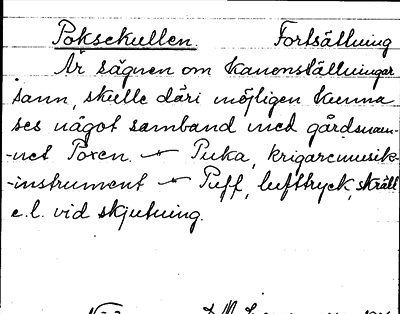 Poksekullen Fortsättning
Är sägnen om kanonställningar
sann, skulle däri möjligen kunna
ses något samband med gårdsnam-
-net Poxen. Puka, krigaremusik-
-instrument Puff, lufttryck, skräll
e.l. vid skjutning.